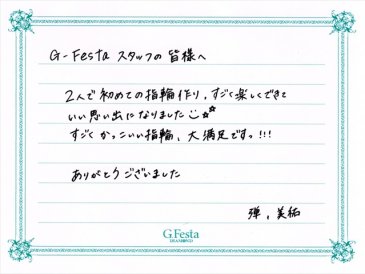 G-Festa スタッフの皆様へ
2人で初めての指輪作り、すごく楽しくできて
いい思い出になりました
すごくかっこいい指輪、大満足ですっ!!!
ありがとうございました
弾、美祐
G.Festa
DIAMOND